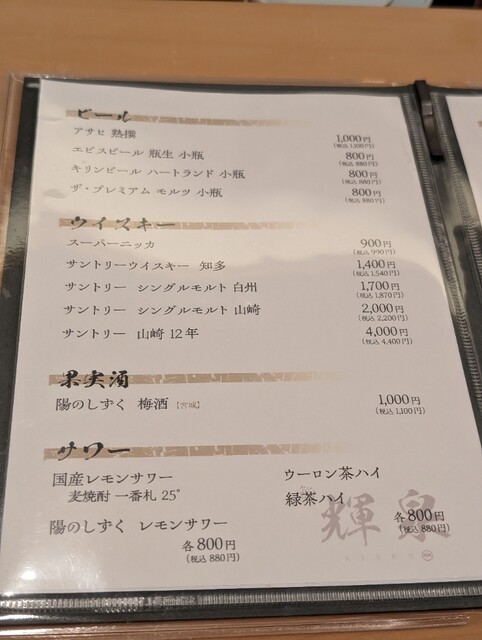 ビール
アサヒ 熟撰 1,000円
(税込 1,100円)
エビスビール 瓶生 小瓶 800円
(税込 880円)
キリンビール ハートランド 小瓶 800円
(税込 880円)
ザ・プレミアム モルツ 小瓶 800円
(税込 880円)
ウイスキー
スーパーニッカ 900円
(税込 990円)
サントリーウイスキー 知多 1,400円
(税込 1,540円)
サントリー シングルモルト 白州 1,700円
(税込 1,870円)
サントリー シングルモルト 山崎 2,000円
(税込 2,200円)
サントリー 山崎 12年 4,000円
(税込 4,400円)
果実酒
陽のしずく 梅酒 【宮城】 1,000円
(税込 1,100円)
サワー
国産レモンサワー
麦焼酎 一番札 25°
陽のしずく レモンサワー
各800円
(税込 880円)
ウーロン茶ハイ
緑茶ハイ
各800円
(税込 880円)
輝 泉